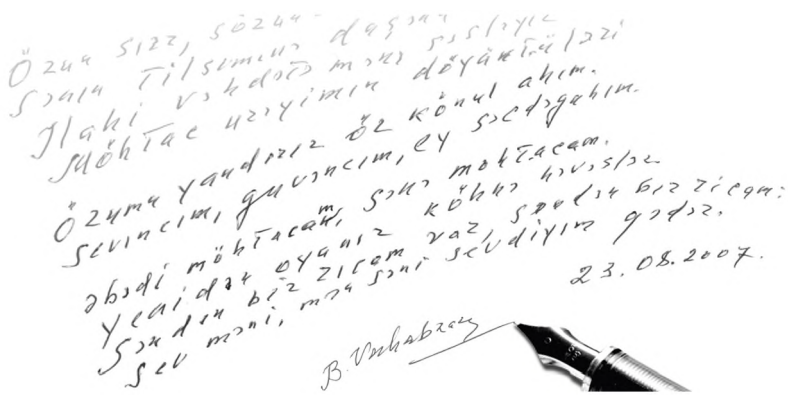 Özün sızz, sözün
Sənin tilsiminə daşına səsləyir
İlahi vəhdətə məni
Möhtac ürəyimin döyüntüləri
Özümü yandırır öz könül ahım.
Sevincim, güvəncim, ey səcdəgahım.
Əbədi möhtacam, sənə möhtacam.
Yenidən oyanır köhnə həvəslər
Səndən bir ricam var, səndən bir ricam:
Sev məni, mən səni sevdiyim qədər.
23.08.2007.
B. Vahabzadə